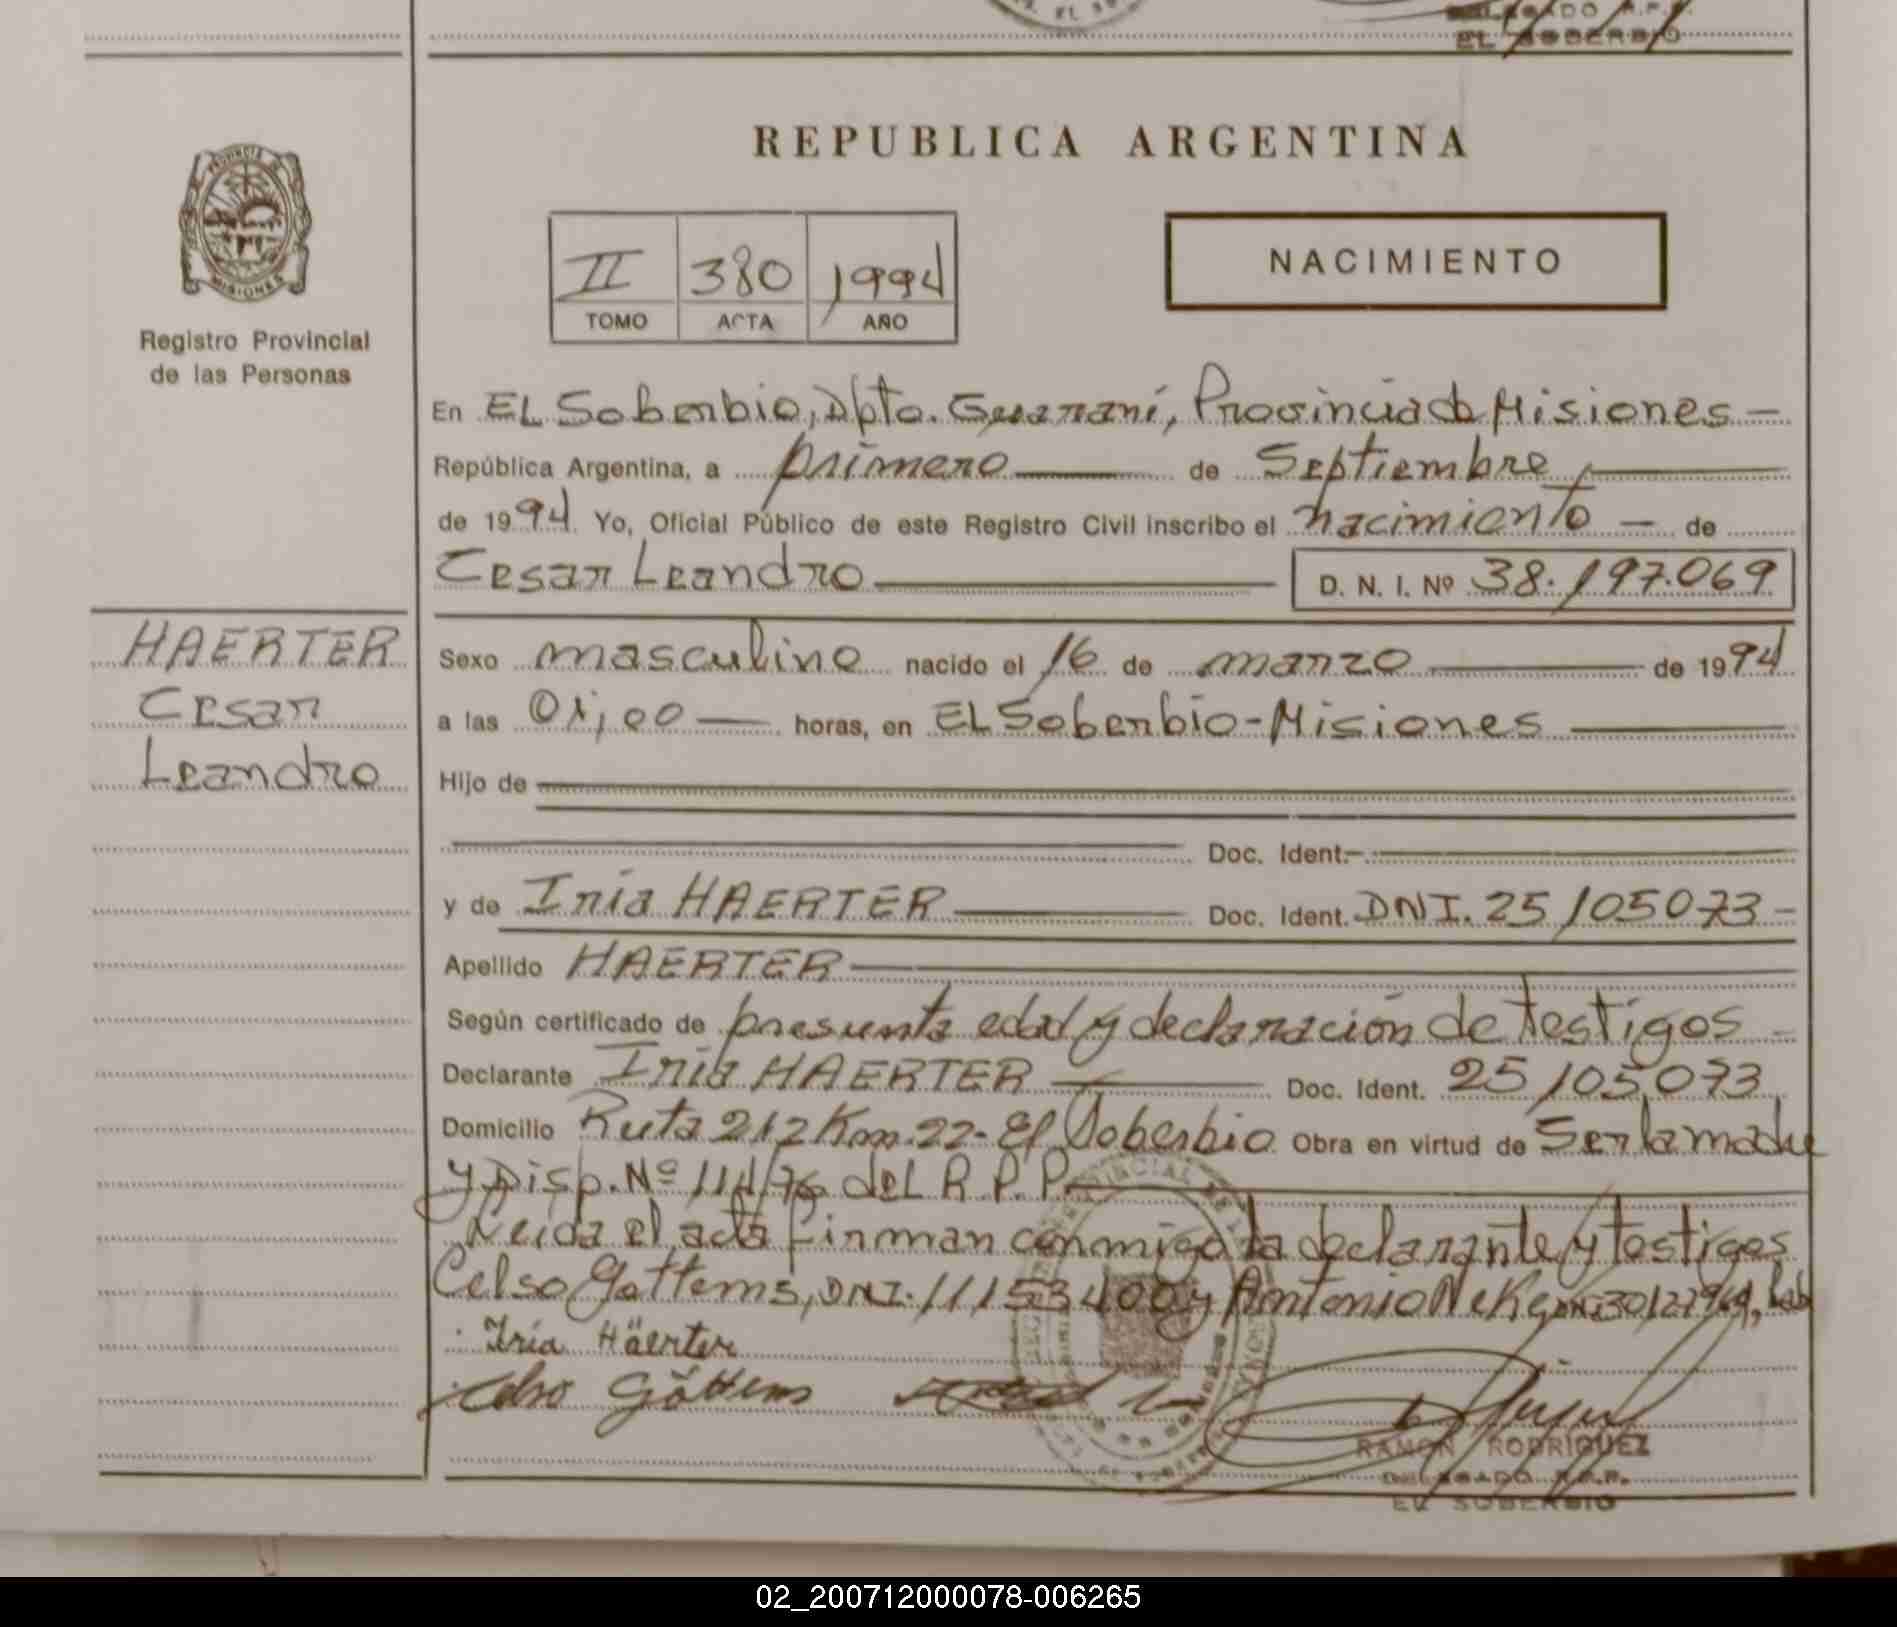 EL SOBERBIO
REPUBLICA ARGENTINA
PROVINCIA DE
MISIONES
Registro Provincial
de las Personas
II 380 1994
TOMO ACTA AÑO
NACIMIENTO
En EL Soberbio, Dpto. Guaraní, Provincia de Misiones —
República Argentina, a primero de Septiembre
de 1994 Yo, Oficial Público de este Registro Civil inscribo el nacimiento — de
Cesar Leandro D. N. I. Nº 38.197.069
HAERTER
Cesar
Leandro
Sexo masculino nacido el 16 de marzo de 1994
a las 01,00 horas, en EL Soberbio - Misiones
Hijo de
Doc. Ident.
y de Iria HAERTER Doc. Ident. DNI. 25105073 -
Apellido HAERTER
Según certificado de presunta edad y declaración de testigos -
Declarante Iria HAERTER Doc. Ident. 25105073
Domicilio Ruta 212 Km. 22- El Soberbio Obra en virtud de Ser la madre
y Disp. Nº 114/76 del R. P. P.
Leida el acta firman conmigo la declarante y testigos
Celso Gottems, DNI. 11153400 y Antonio
Iria Häerter
Celso Göttems
RAMON RODRIGUEZ
DELEGADO R.P.P.
EL SOBERBIO
02_200712000078-006265